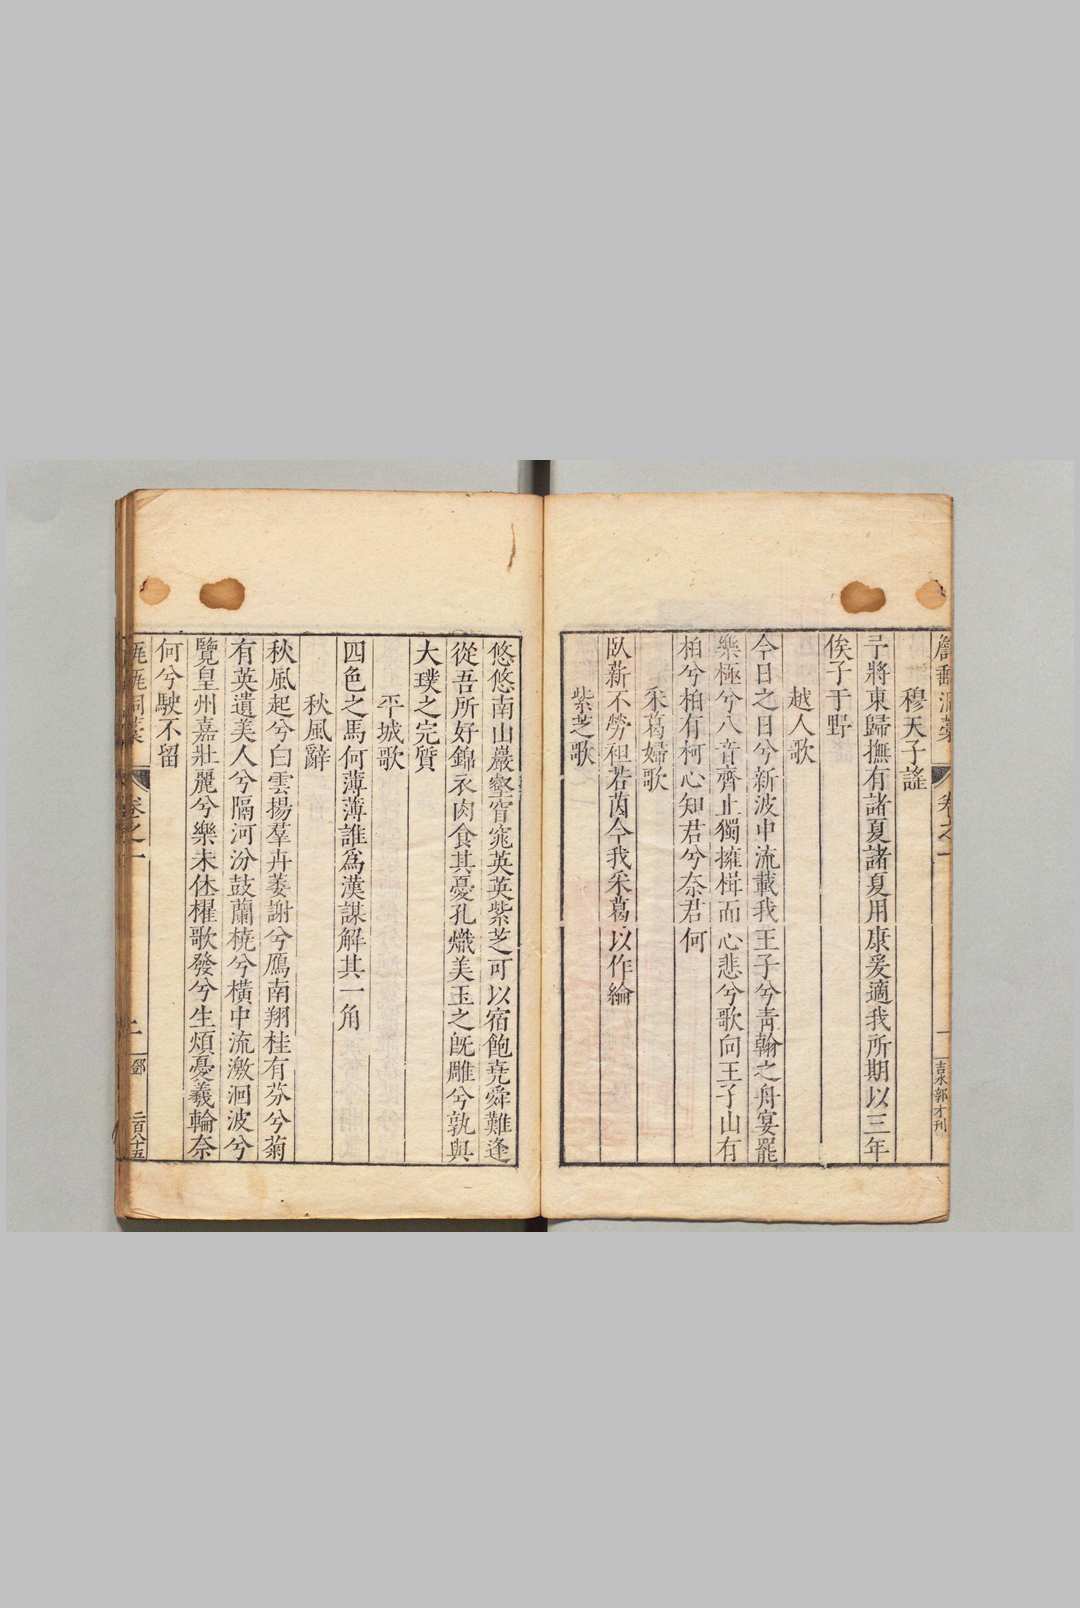 穆天子謠
予將東歸撫有諸夏諸夏用康爰適我所期以三年
俟子于野
越人歌
今日之日兮新波中流載我王子兮青翰之舟宴罷
樂極兮八音齊止獨擁楫而心悲兮歌向王子山有
柏兮柏有柯心知君兮奈君何
采葛婦歌
臥薪不勞袒若茵令我采葛以作綸
紫芝歌
悠悠南山巖壑窅窕英英紫芝可以宿飽堯舜難逢
從吾所好錦衣肉食其憂孔熾美玉之旣雕兮孰與
大璞之完質
平城歌
四色之馬何薄薄誰爲漢謀解其一角
秋風辭
秋風起兮白雲揚羣卉萎謝兮鴈南翔桂有芬兮菊
有英遺美人兮隔河汾鼓蘭橈兮橫中流激洄波兮
覽皇州嘉壯麗兮樂未休櫂歌發兮生煩憂羲輪奈
何兮駛不留
卷之一
二
鄧
二百八十五
卷之一
一
吉水郭才刊